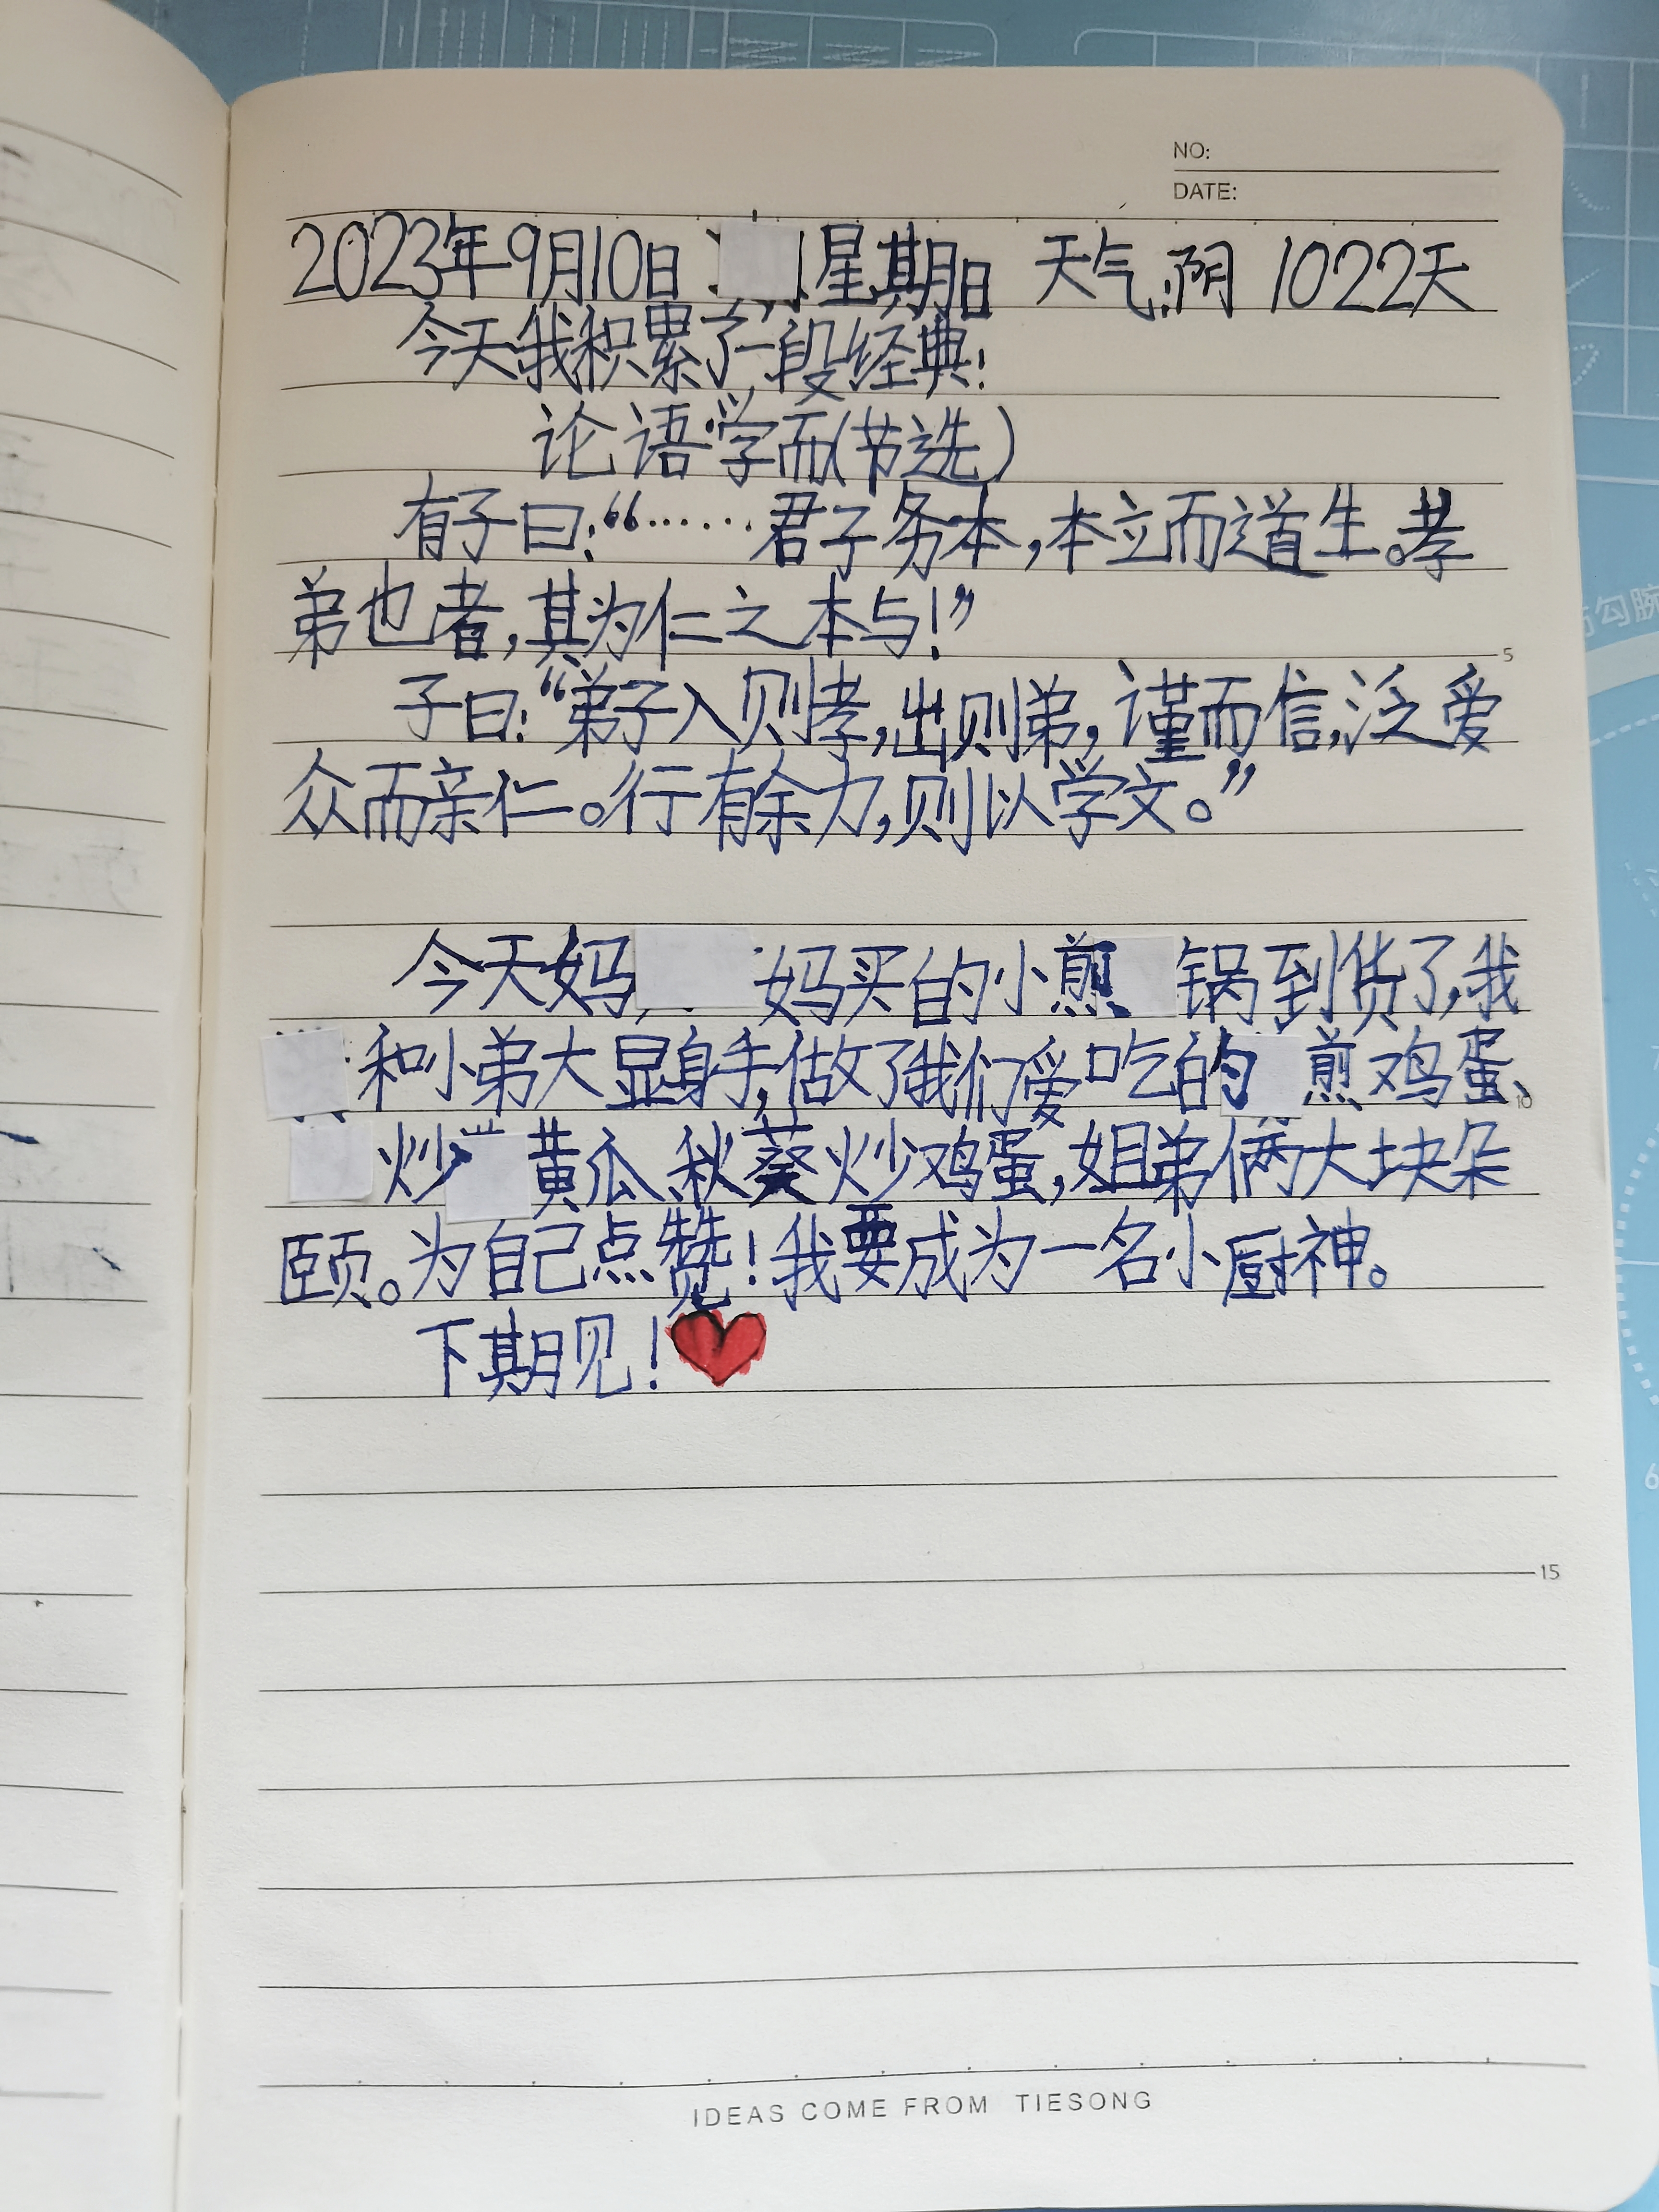 NO:
DATE:
2023年9月10日 星期日 天气:阴 1022天
今天我积累了一段经典:
论语·学而(节选)
有子曰:“……君子务本,本立而道生。孝
弟也者,其为仁之本与!”
子曰:“弟子入则孝,出则弟,谨而信,泛爱
众而亲仁。行有余力,则以学文。”
5
今天妈 妈买的小煎 锅到货了,我
和小弟大显身手,做了我们爱吃的 煎鸡蛋、
10
炒 黄瓜、秋葵炒鸡蛋,姐弟俩大块朵
颐。为自己点赞!我要成为一名小厨神。
下期见!
15
IDEAS COME FROM TIESONG
勾腕
6